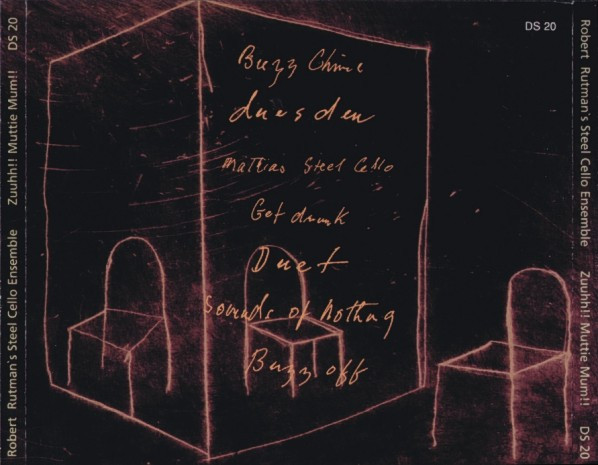 Robert Rutman's Steel Cello Ensemble Zuuhh!! Muttie Mum!! DS 20
DS 20
Buzz Chime
duesden
Mattias Steel Cello
Get drunk
Duet
Sounds of Nothing
Buzz off
Robert Rutman's Steel Cello Ensemble Zuuhh!! Muttie Mum!! DS 20